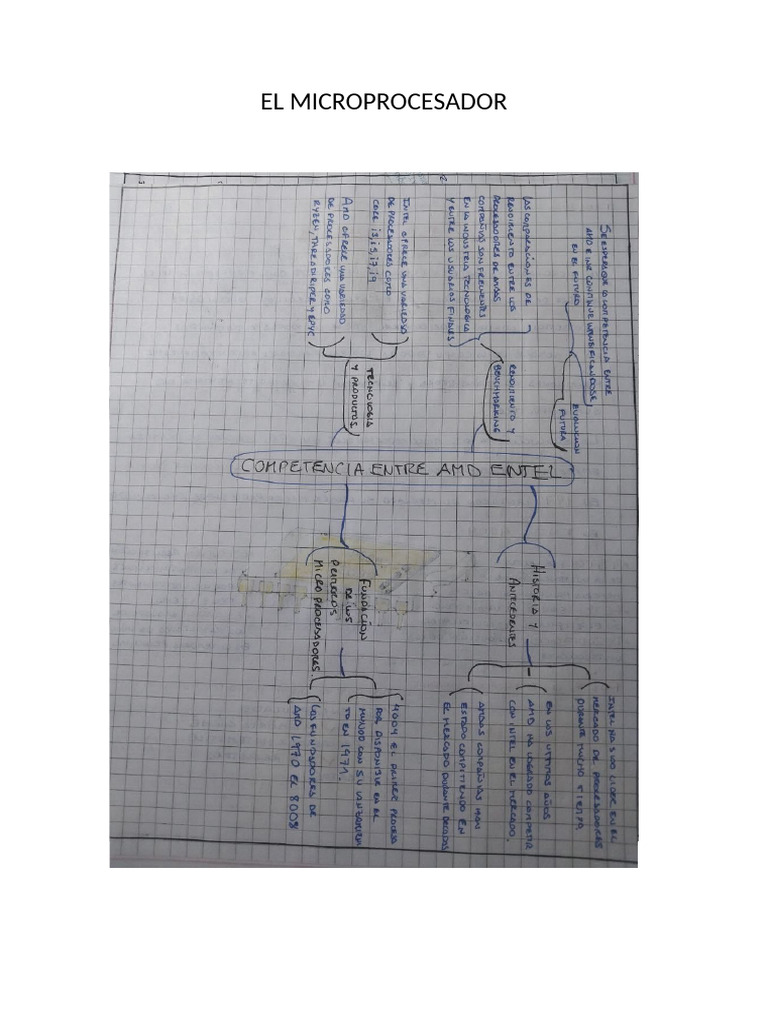 EL MICROPROCESADOR
COMPETENCIA ENTRE AMD ENTEL
EVOLUCION
FUTURA
SE ESPERA QUE LA COMPETENCIA ENTRE
AMD E INTEL CONTINUE INTENSIFICANDOSE
EN EL FUTURO
RENDIMIENTO Y
BENCHMARKING
LAS COMPARACIONES DE
RENDIMIENTO ENTRE LOS
PROCESADORES DE AMBAS
COMPAÑIAS SON FRECUENTES
EN LA INDUSTRIA TECNOLOGICA
Y ENTRE LOS USUARIOS FINALES
TECNOLOGIA
Y PRODUCTOS
INTEL OFRECE UNA VARIEDAD
DE PROCESADORES COMO
CORE i3, i5, i7, i9
AMD OFRECE UNA VARIEDAD
DE PROCESADORES COMO
RYZEN, THREADRIPER Y EPYC
HISTORIA Y
ANTECEDENTES
INTEL HA SIDO LIDER EN EL
MERCADO DE PROCESADORES
DURANTE MUCHO TIEMPO.
EN LOS ULTIMOS AÑOS
AMD HA LOGRADO COMPETIR
CON INTEL EN EL MERCADO.
AMBAS COMPAÑIAS HAN
ESTADO COMPITIENDO EN
EL MERCADO DURANTE DECADAS
FUNDACIÓN
DE LOS
PRIMEROS
MICRO PROCESADORES.
4004 EL PRIMER PROCESA
DOR DISPONIBLE EN EL
MUNDO CON SU LANZAMIEN
TO EN 1971.
LOS FUNDADORES DE
AMD 1970 EL 8008